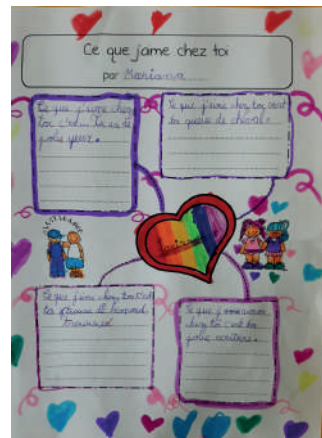 Ce que j'ame chez toi
par Mariana
Ce que j'aime chez
toi c'est Tu as de
jolie yeux.
Ce que j'aime chez toi c'est
ta queue de cheval.
Mariana
Ce que j'aime chez toi c'est
ta
Ce que j'aime
chez toi c'est ta
jolie écriture.